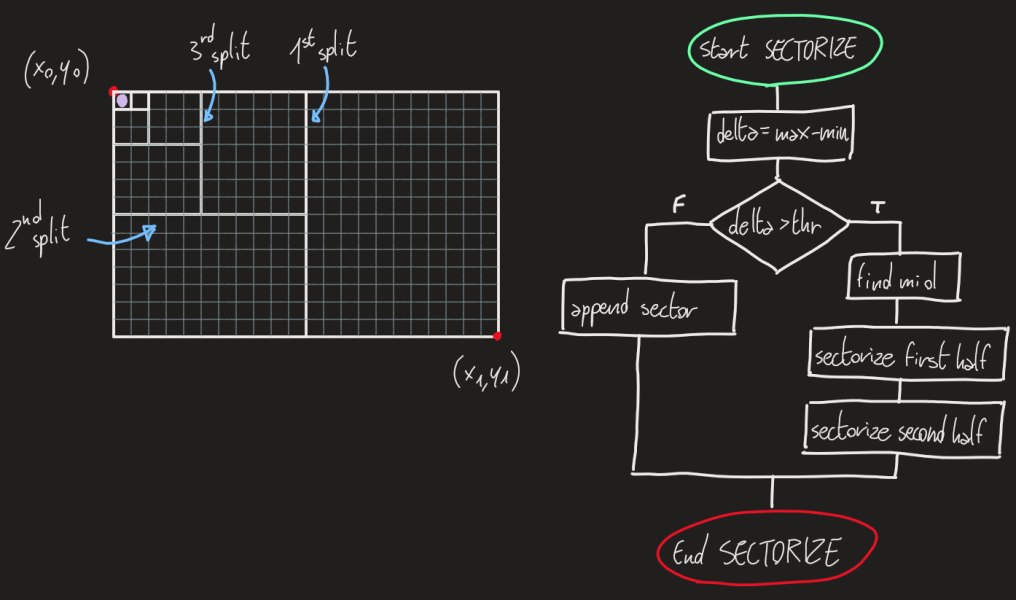 (x0,y0)
3rd split
1st split
2nd split
(x1,y1)
Start SECTORIZE
delta=max-min
delta>thr
F
T
append sector
find mid
sectorize first half
sectorize second half
End SECTORIZE